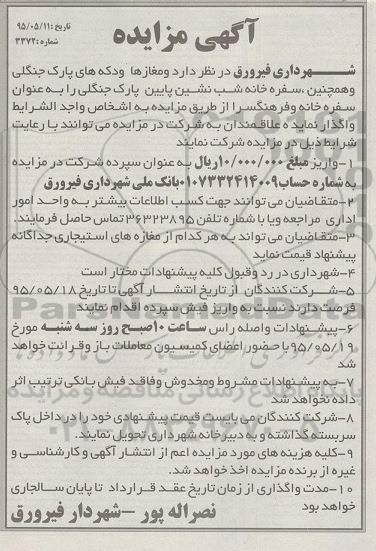 تاریخ: ۹۵/۰۵/۱۱
شماره: ۳۳۷۲
آگهی مزایده
شـــهرداری فیرورق در نظر دارد ومغازها ودکه های پارک جنگلی
وهمچنین ،سفره خانه شب نشین پایین پارک جنگلی را به عنوان
سفره خانه وفرهنگسرا از طریق مزایده به اشخاص واجد الشرایط
واگذار نماید ه علاقمندان به شرکت در مزایده می توانند با رعایت
شرایط ذیل در مزایده شرکت نمایند
۱-واریز مبلغ ۱۰/۰۰۰/۰۰۰ریال به عنوان سپرده شرکت در مزایده
به شماره حساب۰۱۰۷۳۳۲۴۱۴۰۰۹بانک ملی شهرداری فیرورق
۲-متقاضیان می توانند جهت کسب اطلاعات بیشتر به واحد امور
اداری مراجعه ویا با شماره تلفن ۳۶۳۲۳۸۹۵تماس حاصل فرمایند.
۳-متقاضیان می تواند به هر کدام از مغازه های استیجاری جداگانه
پیشنهاد قیمت نماید
۴-شهرداری در رد وقبول کلیه پیشنهادات مختار است
۵-شرکت کنندگان از تاریخ انتشار آگهی تا تاریخ ۹۵/۰۵/۱۸
فرصت دارند نسبت به واریز فیش سپرده اقدام نمایند
۶-پیشنهادات واصله راس ساعت ۱۰صبح روز سه شنبه مورخ
۹۵/۰۵/۱۹با حضور اعضای کمیسیون معاملات باز وقرائت خواهد
شد
۷-به پیشنهادات مشروط ومخدوش وفاقد فیش بانکی ترتیب اثر
داده نخواهد شد
۸-شرکت کنندگان می بایست قیمت پیشنهادی خود را در داخل پاک
سربسته گذاشته و به دبیرخانه شهرداری تحویل نمایند.
۹-کلیه هزینه های مورد مزایده اعم از انتشار آگهی و کارشناسی و
غیره از برنده مزایده اخذ خواهد شد.
۱۰-مدت واگذاری از زمان تاریخ عقد قرارداد تا پایان سالجاری
خواهد بود
نصراله پور -شهردار فیرورق